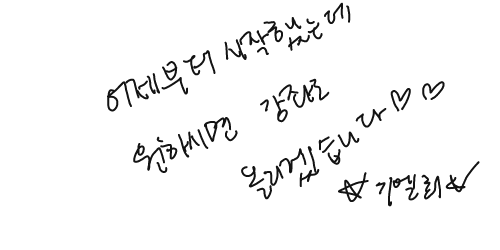 어제부터 시작했는데
원하시면 강좌로
올리겠습니다♡♡
☆기엘리☆